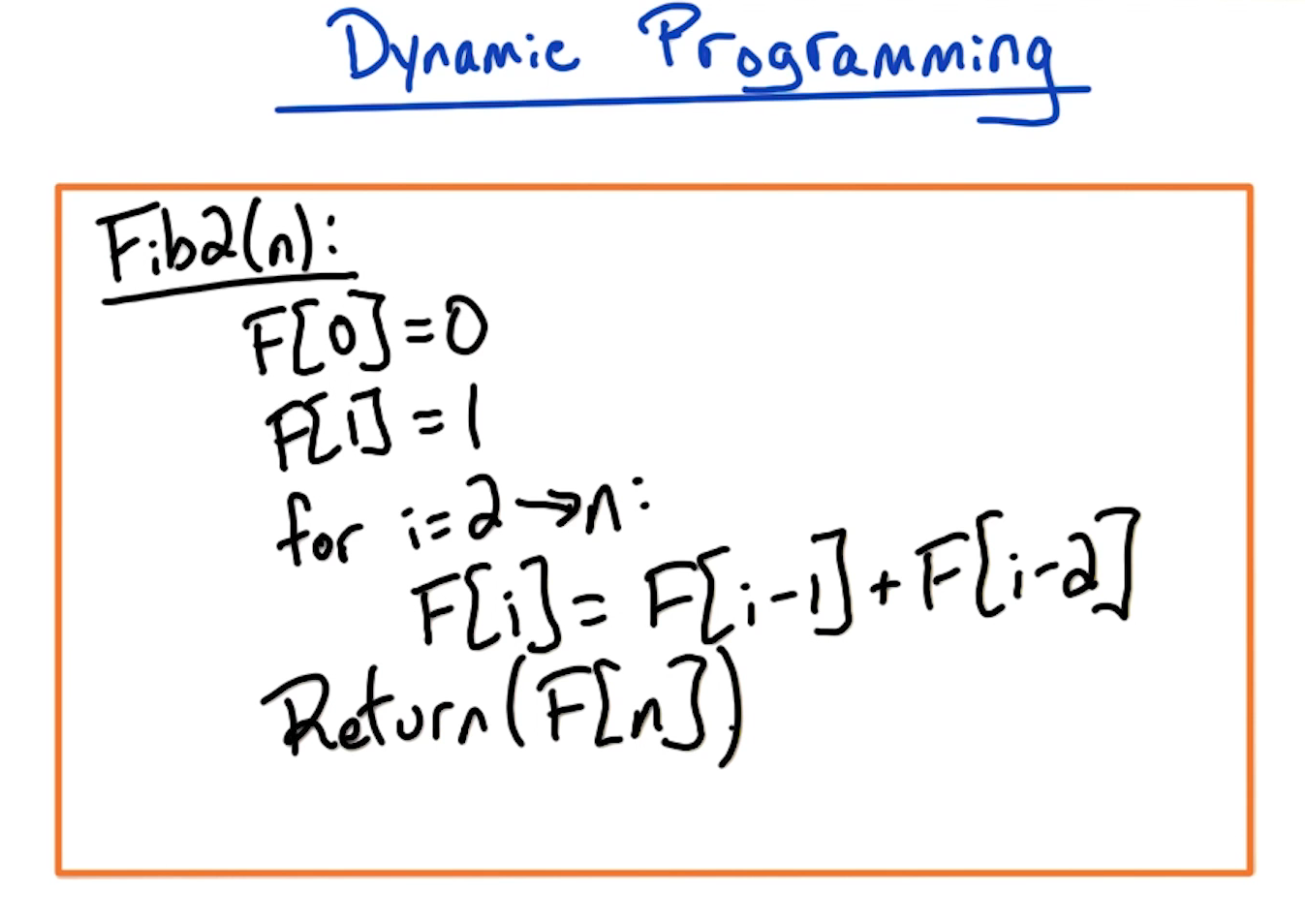 Dynamic Programming
Fib2(n):
F[0]=0
F[1]=1
for i=2→n:
F[i]=F[i-1]+F[i-2]
Return(F[n])